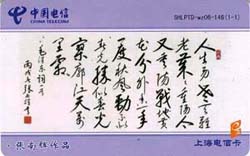 中国电信
CHINA TELECOM
SHLPTD-wz06-146(1-1)
人生易老天难
老岁岁重阳今
又重阳战地黄
花分外香一年
一度秋风劲不似
春光胜似春光
寥廓江天万
里霜
毛泽东词
丙戌
作品
上海电信卡